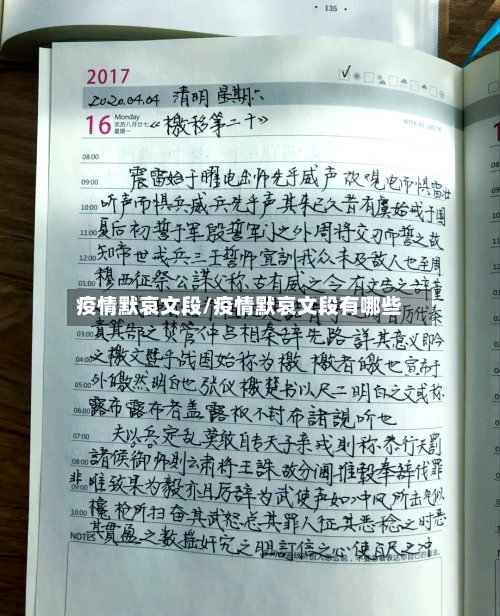 · 135 ·
2017
2020.04.04 清明 星期六
16 Monday
农历八月廿七
星期一
《檄移第二十》
08:00
震雷始于曜电出师先乎威声故观电而惧雷壮
09:00
听声而惧兵威兵先乎声其来已久昔有虞始戒于国
10:00
夏后初誓于军殷誓军门之外周将交刃而誓之故
11:00
知帝世戒兵三王誓师宣训我众未及敌人也至周
12:00
穆西征祭公谋父称古有威之令有文告之辞董
疫情默哀文段/疫情默哀文段有哪些
历代秦
03:00
责其 部之焚管仲吕相奉辞先路详其意义即今
04:00
之檄文暨乎战国始称为檄檄者皦也宣布于
05:00
外皦然明白也张仪檄楚书以尺二明白之文或称
06:00
露布露布者盖露板不封布諸視听也
07:00
夫以兵定乱莫敢自专天子亲戎则称恭行天罰
08:00
諸侯御师则云肃将王誅故分阃推毂奉辞伐罪
09:00
非唯致果为毅亦且厉辞为武使声如冲风所击气似
10:00
欃枪所扫奋其武怒总其罪人征其恶稔之时
NOTES
其贯盈之数摇奸宄之胆訂信之心使百尺之冲